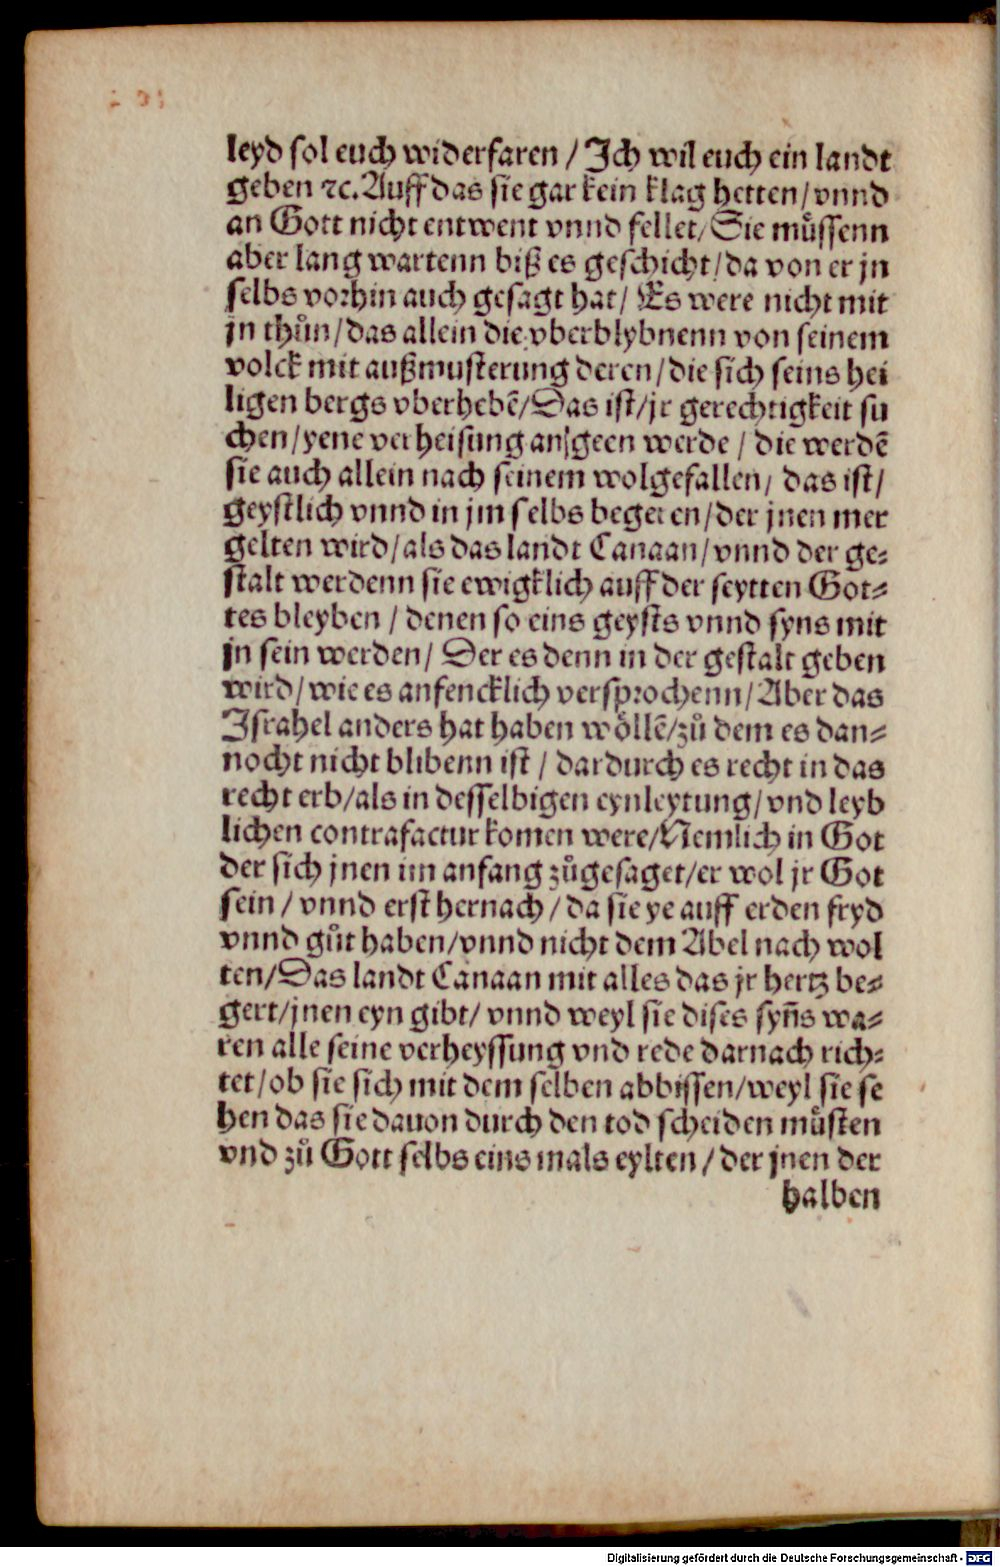 leyd sol euch widerfaren / Ich wil euch ein landt
geben ꝛc. Auff das sie gar kein klag hetten / vnnd
an Gott nicht entwent vnnd fellet / Sie muͤssenn
aber lang wartenn biß es geschicht / da von er jn
selbs vorhin auch gesagt hat / Es were nicht mit
jn thuͦn / das allein die vberblybnenn von seinem
volck mit außmusterung deren / die sich seins hei
ligen bergs vberhebē / Das ist / jr gerechtigkeit su
chen / yene verheisung angeen werde / die werdē
sie auch allein nach seinem wolgefallen / das ist /
geystlich vnnd in jm selbs begeren / der jnen mer
gelten wird / als das landt Canaan / vnnd der ge⸗
stalt werdenn sie ewigklich auff der seytten Got⸗
tes bleyben / denen so eins geysts vnnd syns mit
jn sein werden / Der es denn in der gestalt geben
wird / wie es anfencklich versprochenn / Aber das
Israhel anders hat haben woͤllē / zuͦ dem es dan⸗
nocht nicht blibenn ist / dardurch es recht in das
recht erb / als in desselbigen eynleytung / vnd leyb
lichen contrafactur komen were / Nemlich in Got
der sich jnen im anfang zuͦgesaget / er wol jr Got
sein / vnnd erst hernach / da sie ye auff erden fryd
vnnd guͦt haben / vnnd nicht dem Abel nach wol
ten / Das landt Canaan mit alles das jr hertz be⸗
gert / jnen eyn gibt / vnnd weyl sie dises syn̄s wa⸗
ren alle seine verheyssung vnd rede darnach rich⸗
tet / ob sie sich mit dem selben abbissen / weyl sie se
hen das sie dauon durch den tod scheiden muͤsten
vnd zuͦ Gott selbs eins mals eylten / der jnen der
halben
Digitalisierung gefördert durch die Deutsche Forschungsgemeinschaft - DFG